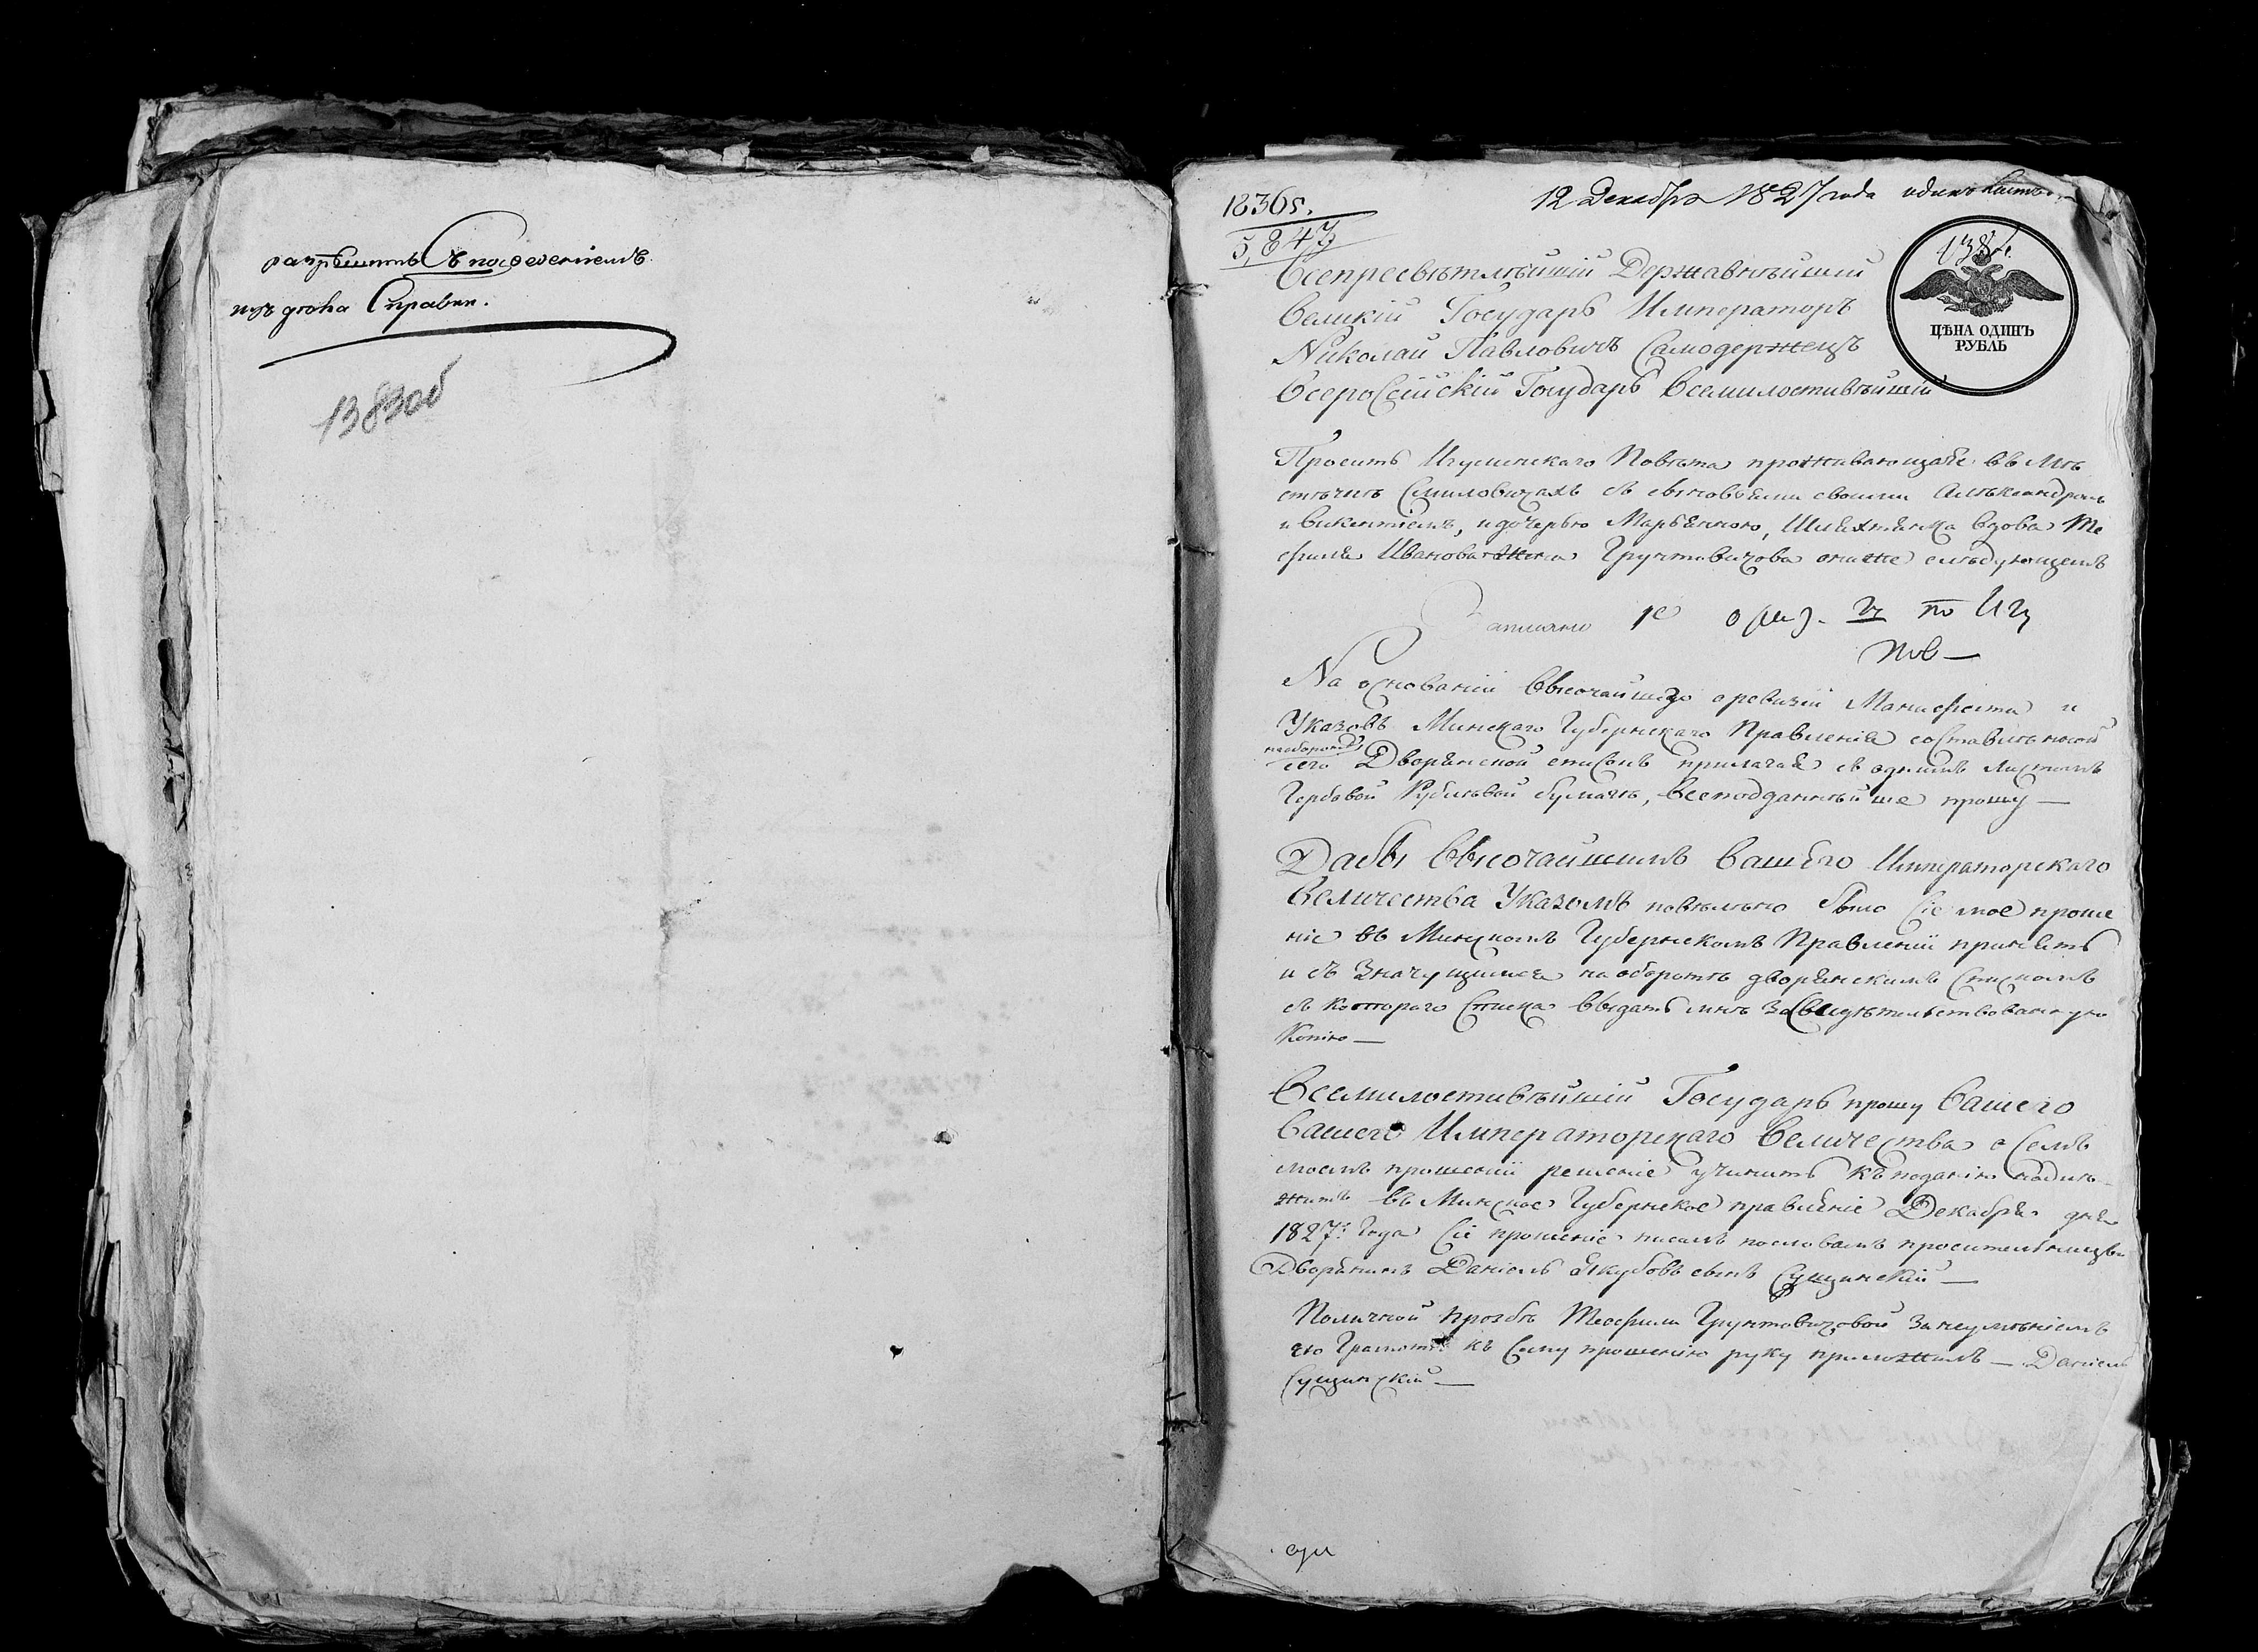 разрѣшить с поведеніемъ
изъ дѣла Справки.
1383об
12 Декабря 1827 года одинъ листъ
1836г.
5,847
138
ЦѢНА ОДИНЪ
РУБЛЬ
Всепресвѣтлѣйшій Державнѣйшій
Великій Государь Императоръ
Николай Павловичъ Самодержецъ
Всеросссійскій Государь Всемилостивѣйшій
Проситъ Игуменскаго Повѣта проживающая въ мѣ
стечкѣ Смиловичахъ съ сыновьями своими Александромъ
и Викентіемъ, и дочерью Марьянною, Шляхтянка вдова Те
офиля Иванова жена Грунтовичова о ниже слѣдующемъ
Записано по Иг
Пов —
На основаніи Высочайшаго о ревизіи Манифеста и
Указовъ Минскаго Губернскаго Правленія составленной
на оборотѣ
сего Дворянской списокъ прилагая съ однимъ листомъ
Гербовой Рублевой бумаги, всеподданнѣйше прошу —
Дабы Высочайшимъ Вашего Императорскаго
Величества Указомъ повелѣно было Сіе мое проше
ніе въ Минскомъ Губернскомъ Правленіи принять
и съ Значущимся на оборотѣ дворянскимъ Спискомъ
съ котораго Списка выдать мнѣ Засвидѣтельствованную
Копію —
Всемилостивѣйшій Государь прошу Вашего
Вашего Императорскаго Величества о Семъ
моемъ прошеніи решеніе учинить Къ поданію надле-
житъ въ Минское Губернское правленіе Декабря дня
1827: Года Сіе прошеніе писалъ по словамъ просительницы
Дворянинъ Даніель Якубовъ сынъ Сущинскій —
По личной прозбѣ Теофили Грунтовичовой За неумѣніемъ
ею Грамотѣ къ Сему прошенію руку приложилъ — Даніель
Сущинскій —